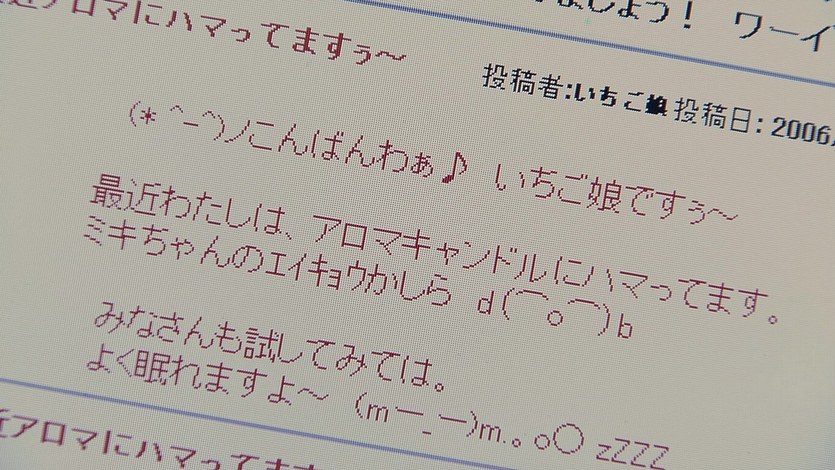 ましょう！ ワーイ
近アロマにハマってますぅ～
投稿者:いちご娘 投稿日: 2006
(* ^-^)ノこんばんわぁ♪ いちご娘ですぅ～
最近わたしは、アロマキャンドルにハマってます。
ミキちゃんのエイキョウかしら d(⌒o⌒)b
みなさんも試してみては。
よく眠れますよ～ (m ー_ー)m.。o○ zZZZ
近アロマにハマってます